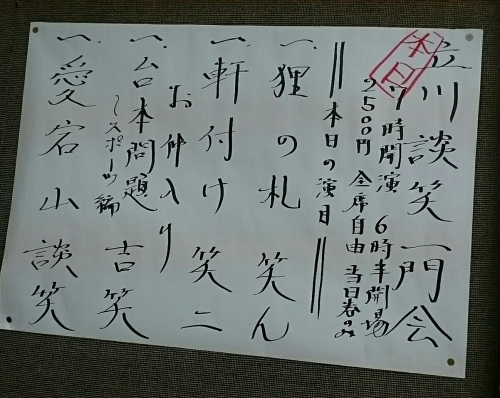 立川談笑一門会
本日
7時開演 6時半開場
2500円 全席自由 当日券のみ
本日の演目
一、狸の札 笑ん
一、軒付け 笑二
お仲入り
一、台本問題 吉笑
〜スポーツ編
一、愛宕山 談笑